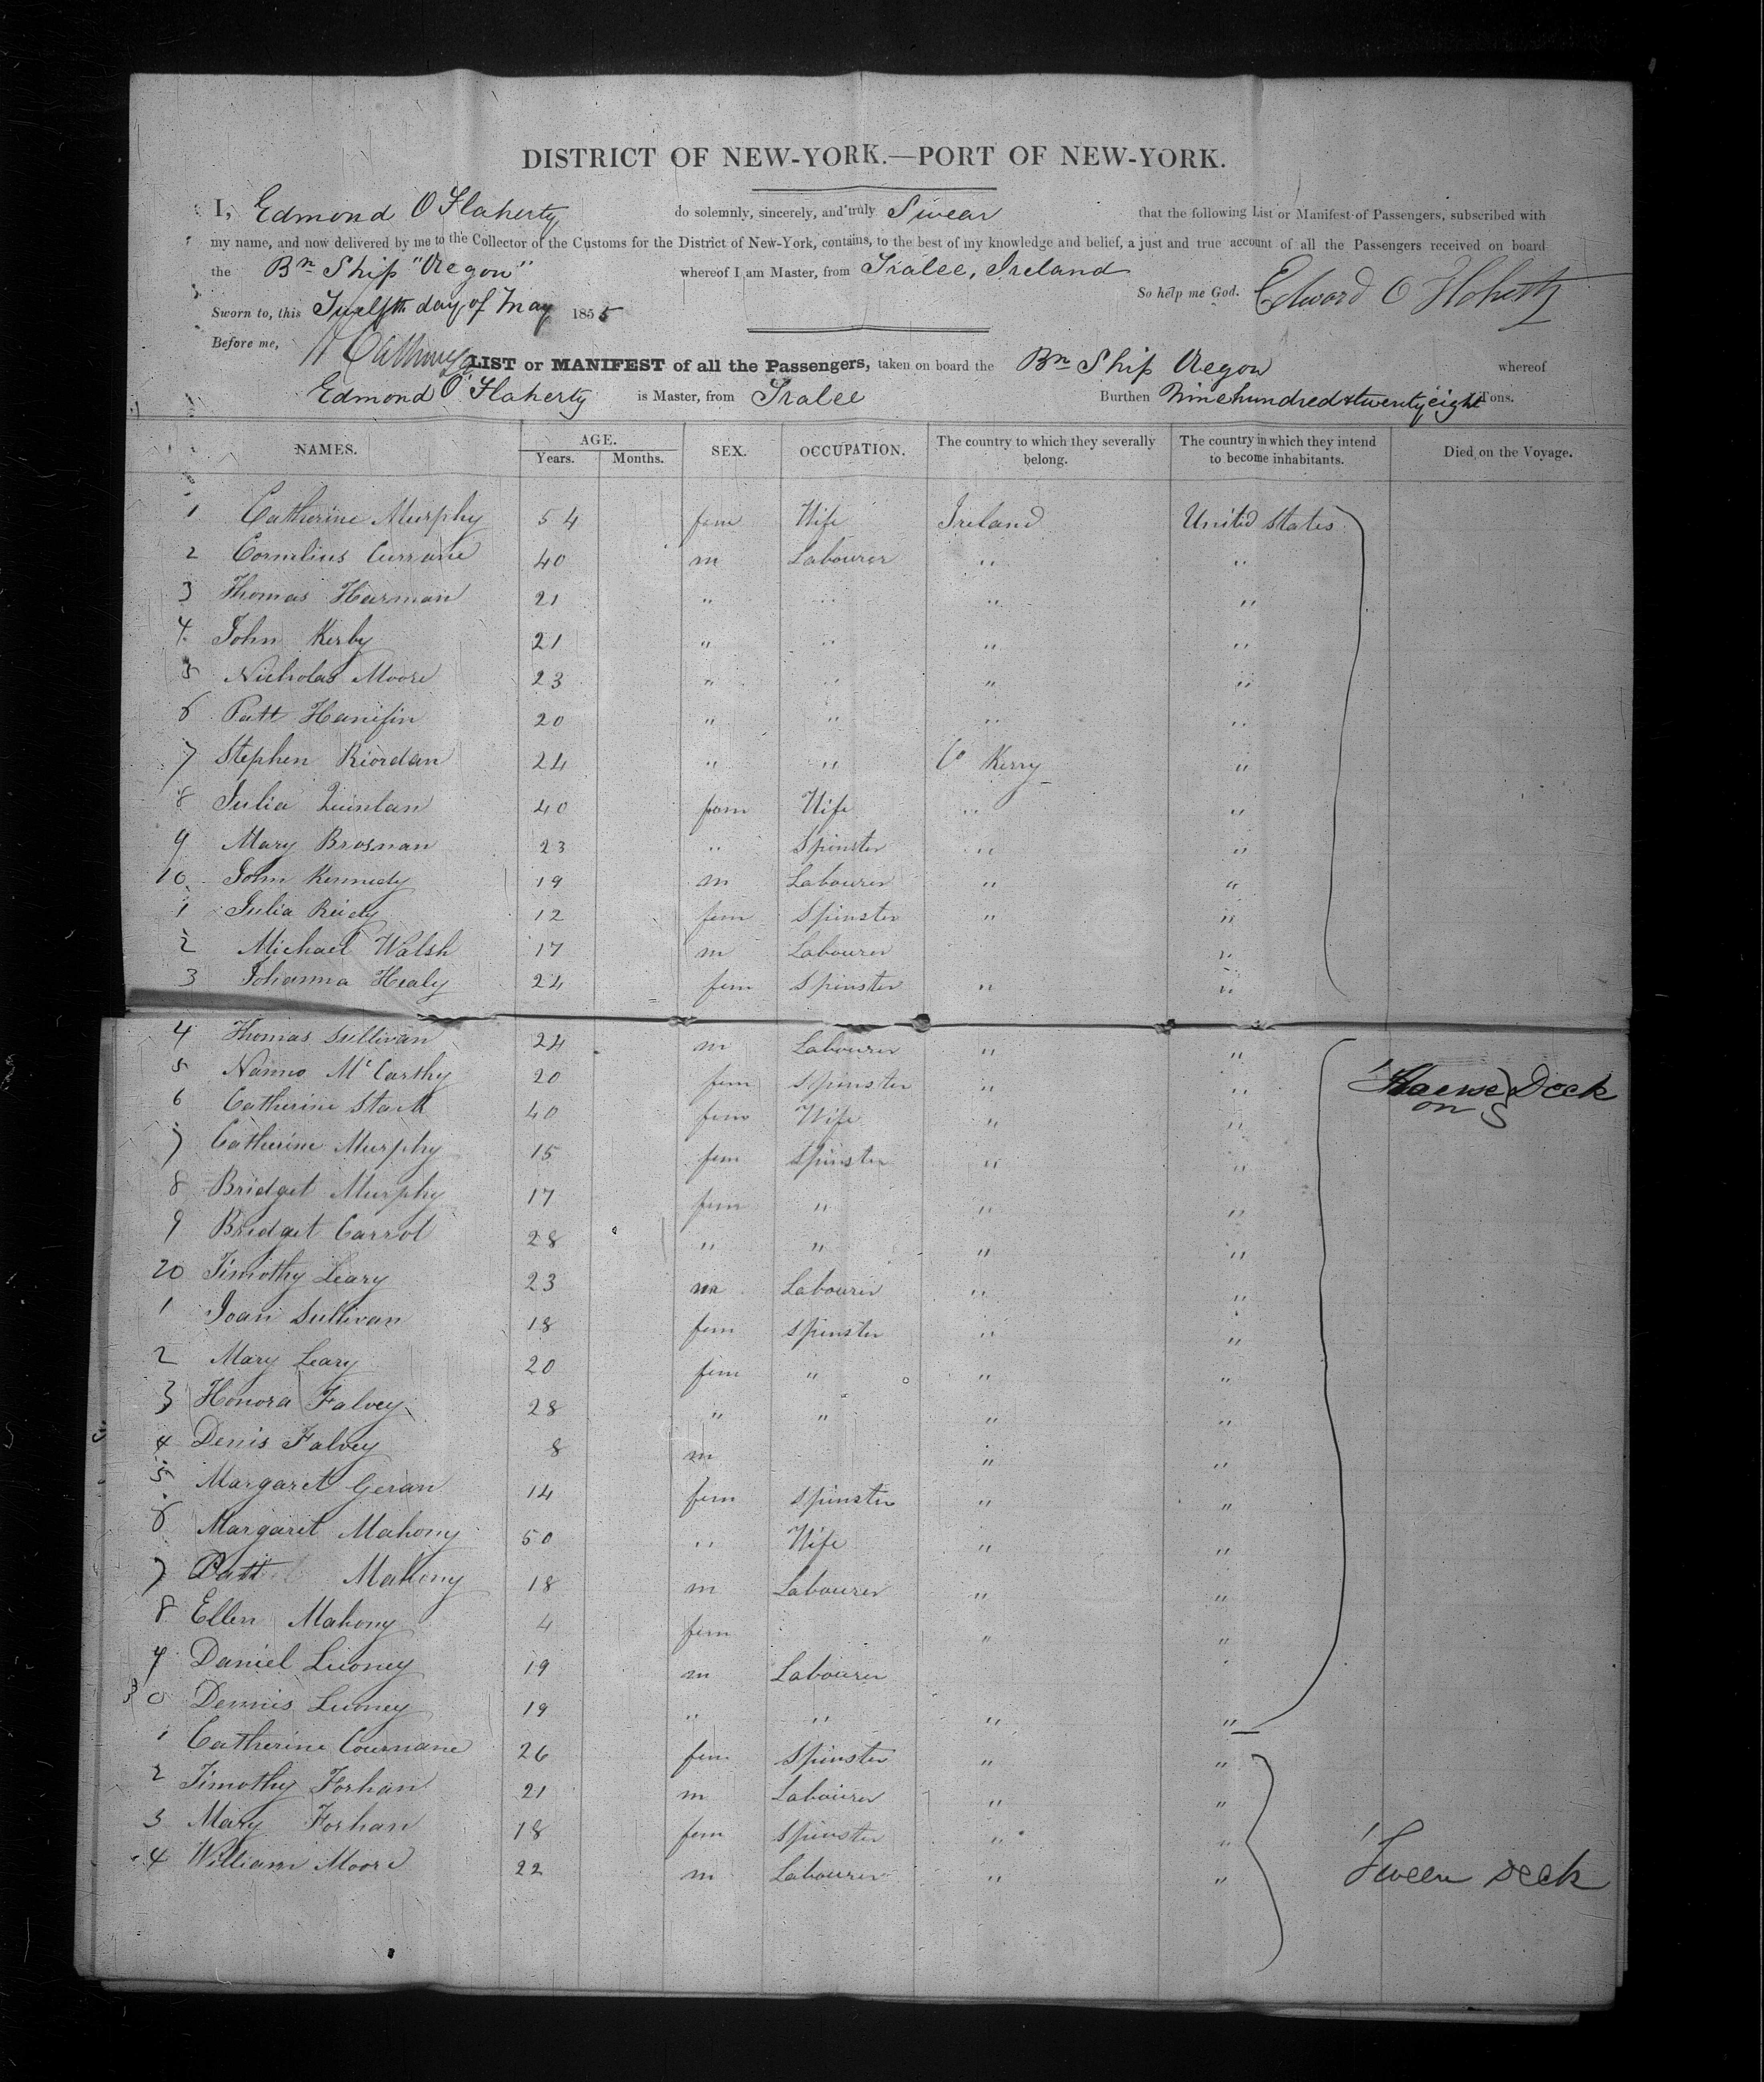 DISTRICT OF NEW-YORK.—PORT OF NEW-YORK.
I, Edmond O'Flaherty do solemnly, sincerely, and truly Swear that the following List or Manifest of Passengers, subscribed with
my name, and now delivered by me to the Collector of the Customs for the District of New-York, contains, to the best of my knowledge and belief, a just and true account of all the Passengers received on board
the Bn Ship "Aegon" whereof I am Master, from Tralee, Ireland
So help me God. Edword O Floherty
Sworn to, this Twelfth day of May 1855
Before me,
LIST or MANIFEST of all the Passengers, taken on board the Bn Ship Aegon whereof
Edmond O'Flaherty is Master, from Tralee Burthen Nine hundred & twenty eight Tons.
NAMES. AGE. Years. Months. SEX. OCCUPATION. The country to which they severally belong. The country in which they intend to become inhabitants. Died on the Voyage.
1 Catherine Murphy 54 fem Wife Ireland United States
2 Cornelius Currane 40 m Labourer " "
3 Thomas Harman 21 " " " "
4 John Kerby 21 " " " "
5 Nicholas Moore 23 " " " "
6 Patt Hanifin 20 " " " "
7 Stephen Riordan 24 " " Co Kerry "
8 Julia Quinlan 40 fem Wife " "
9 Mary Brosnan 23 " Spinster " "
10 John Kennedy 19 m Labourer " "
1 Julia Reidy 12 fem Spinster " "
2 Michael Walsh 17 m Labourer "
3 Johanna Healy 24 fem Spinster " "
4 Thomas Sullivan 24 m Labourer " "
5 Nanno McCarthy 20 fem Spinster " "
Deck
on
6 Catherine Stack 40 fem Wife " "
7 Catherine Murphy 15 fem Spinster " "
8 Bridget Murphy 17 fem " " "
9 Bridget Carrol 28 " " " "
20 Timothy Leary 23 m Labourer " "
1 Joan Sullivan 18 fem Spinster " "
2 Mary Leary 20 fem " " "
3 Honora Falvey 28 " " " "
4 Denis Falvey 8 m " "
5 Margaret Geran 14 fem Spinster " "
6 Margaret Mahony 50 " Wife " "
7 Patt Mahony 18 m Labourer " "
8 Ellen Mahony 4 fem " "
9 Daniel Luoney 19 m Labourer "
30 Dennis Luoney 19 " " " "
1 Catherine Cournane 26 fem Spinster " "
2 Timothy Forhan 21 m Labourer " "
3 Mary Forhan 18 fem Spinster " "
4 William Moore 22 m Labourer " "
'Tween Deck